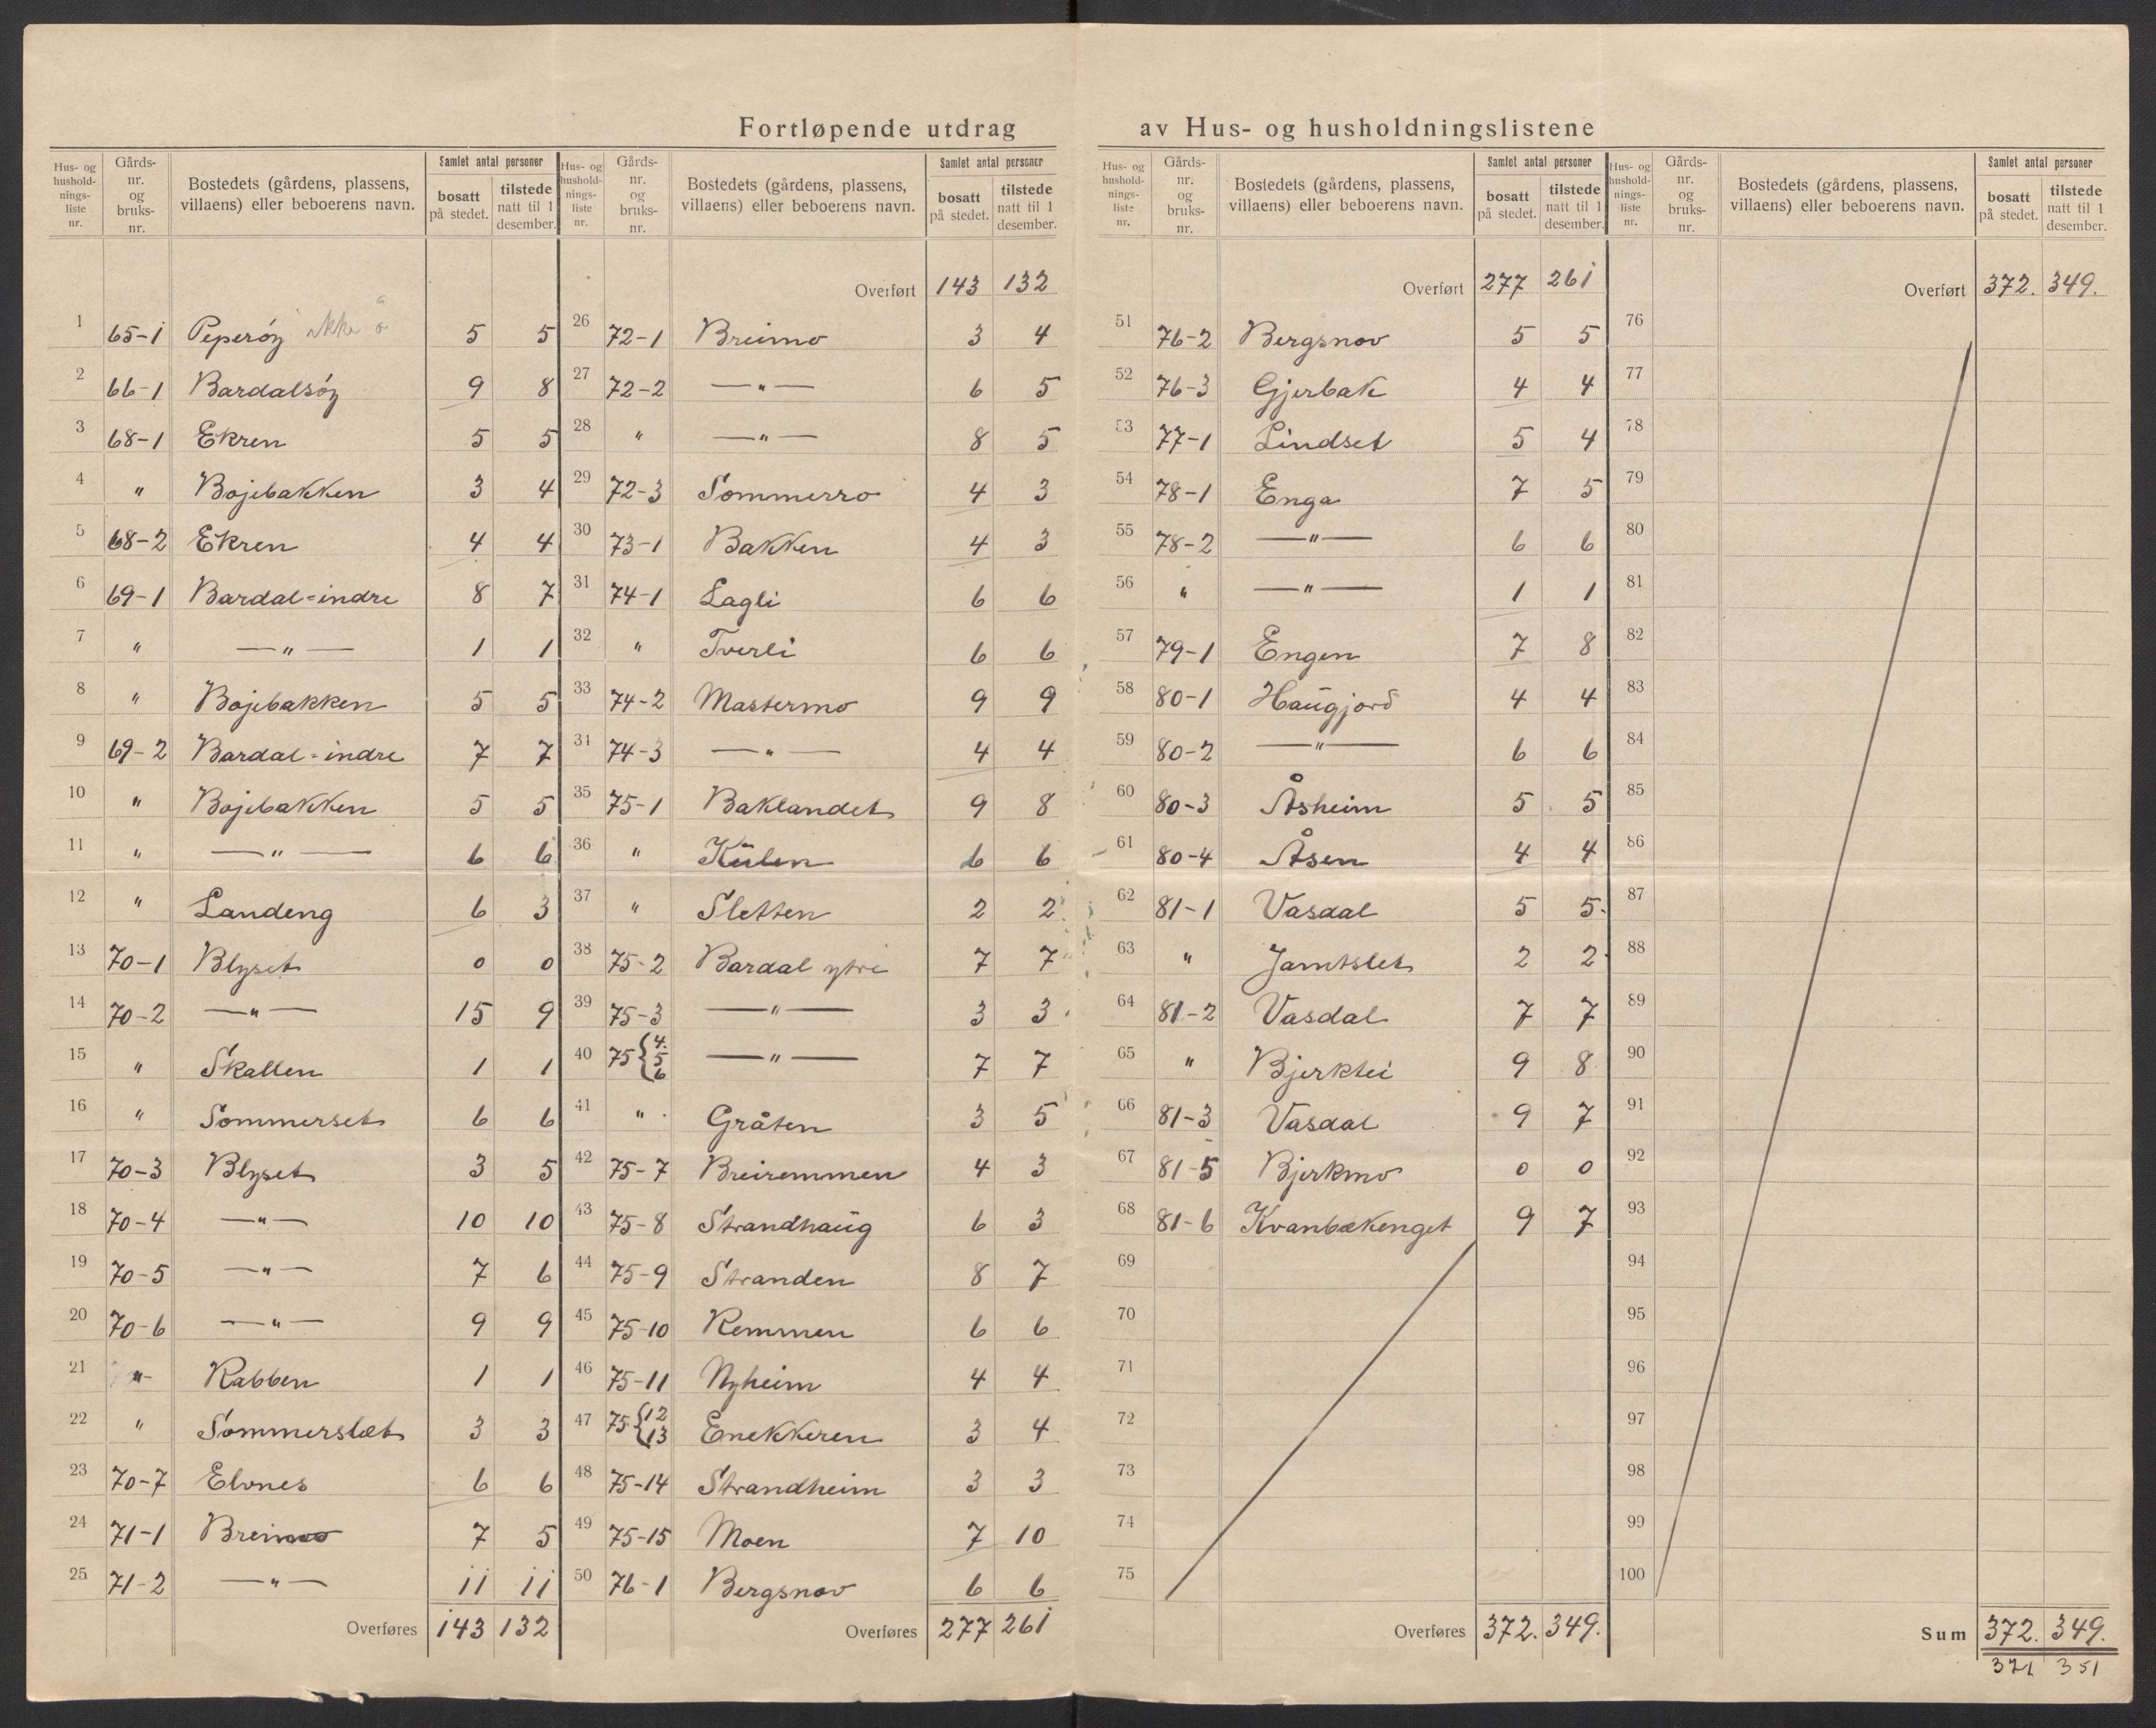 Fortløpende utdrag av Hus- og husholdningslistene
Hus- og hushold-nings-liste nr. | Gårds-nr. og bruks-nr. | Bostedets (gårdens, plassens, villaens) eller beboerens navn. | Samlet antal personer | bosatt på stedet. | tilstede natt til 1 desember.
1 65-1 Peperöy ikke 5 5
2 66-1 Bardalsöy 9 8
3 68-1 Ekren 5 5
4 " Bojebakken 3 4
5 68-2 Ekren 4 4
6 69-1 Bardal-indre 8 7
7 " —"— 1 1
8 " Bojebakken 5 5
9 69-2 Bardal-indre 7 7
10 " Bojebakken 5 5
11 " —"— 6 6
12 " Landeng 6 3
13 70-1 Blyset 0 0
14 70-2 —"— 15 9
15 " Skallen 1 1
16 " Sommerset 6 6
17 70-3 Blyset 3 5
18 70-4 —"— 10 10
19 70-5 —"— 7 6
20 70-6 —"— 9 9
21 " Rabben 1 1
22 " Sommerslæt 3 3
23 70-7 Elvnes 6 6
24 71-1 Breimo 7 5
25 71-2 —"— 11 11
Overføres 143 132
Hus- og hushold-nings-liste nr. | Gårds-nr. og bruks-nr. | Bostedets (gårdens, plassens, villaens) eller beboerens navn. | Samlet antal personer | bosatt på stedet. | tilstede natt til 1 desember.
Overført 143 132
26 72-1 Breimo 3 4
27 72-2 —"— 6 5
28 " —"— 8 5
29 72-3 Sommerro 4 3
30 73-1 Bakken 4 3
31 74-1 Lagli 6 6
32 " Tverli 6 6
33 74-2 Mastermo 9 9
31 74-3 —"— 4 4
35 75-1 Baklandet 9 8
36 " Kulen 6 6
37 " Sletten 2 2
38 75-2 Bardal ytre 7 7
39 75-3 —"— 3 3
40 75 {4. 5 6 —"— 7 7
41 " Gråten 3 5
42 75-7 Breiremmen 4 3
43 75-8 Strandhaug 6 3
44 75-9 Stranden 8 7
45 75-10 Remmen 6 6
46 75-11 Nyheim 4 4
47 75 {12 13 Enekkeren 3 4
48 75-14 Strandheim 3 3
49 75-15 Moen 7 10
50 76-1 Bergsnov 6 6
Overføres 277 261
Hus- og hushold-nings-liste nr. | Gårds-nr. og bruks-nr. | Bostedets (gårdens, plassens, villaens) eller beboerens navn. | Samlet antal personer | bosatt på stedet. | tilstede natt til 1 desember.
Overført 277 261
51 76-2 Bergsnov 5 5
52 76-3 Gjerbak 4 4
53 77-1 Lindset 5 4
54 78-1 Enga 7 5
55 78-2 —"— 6 6
56 " —"— 1 1
57 79-1 Engen 7 8
58 80-1 Haugjord 4 4
59 80-2 —"— 6 6
60 80-3 Åsheim 5 5
61 80-4 Åsen 4 4
62 81-1 Vasdal 5 5
63 " Jamtslet 2 2
64 81-2 Vasdal 7 7
65 " Bjerkli 9 8
66 81-3 Vasdal 9 7
67 81-5 Bjerkmo 0 0
68 81-6 Kvanbækenget 9 7
69
70
71
72
73
74
75
Overføres 372. 349.
Hus- og hushold-nings-liste nr. | Gårds-nr. og bruks-nr. | Bostedets (gårdens, plassens, villaens) eller beboerens navn. | Samlet antal personer | bosatt på stedet. | tilstede natt til 1 desember.
Overført 372. 349.
76
77
78
79
80
81
82
83
84
85
86
87
88
89
90
91
92
93
94
95
96
97
98
99
100
Sum 372. 349.
371 351